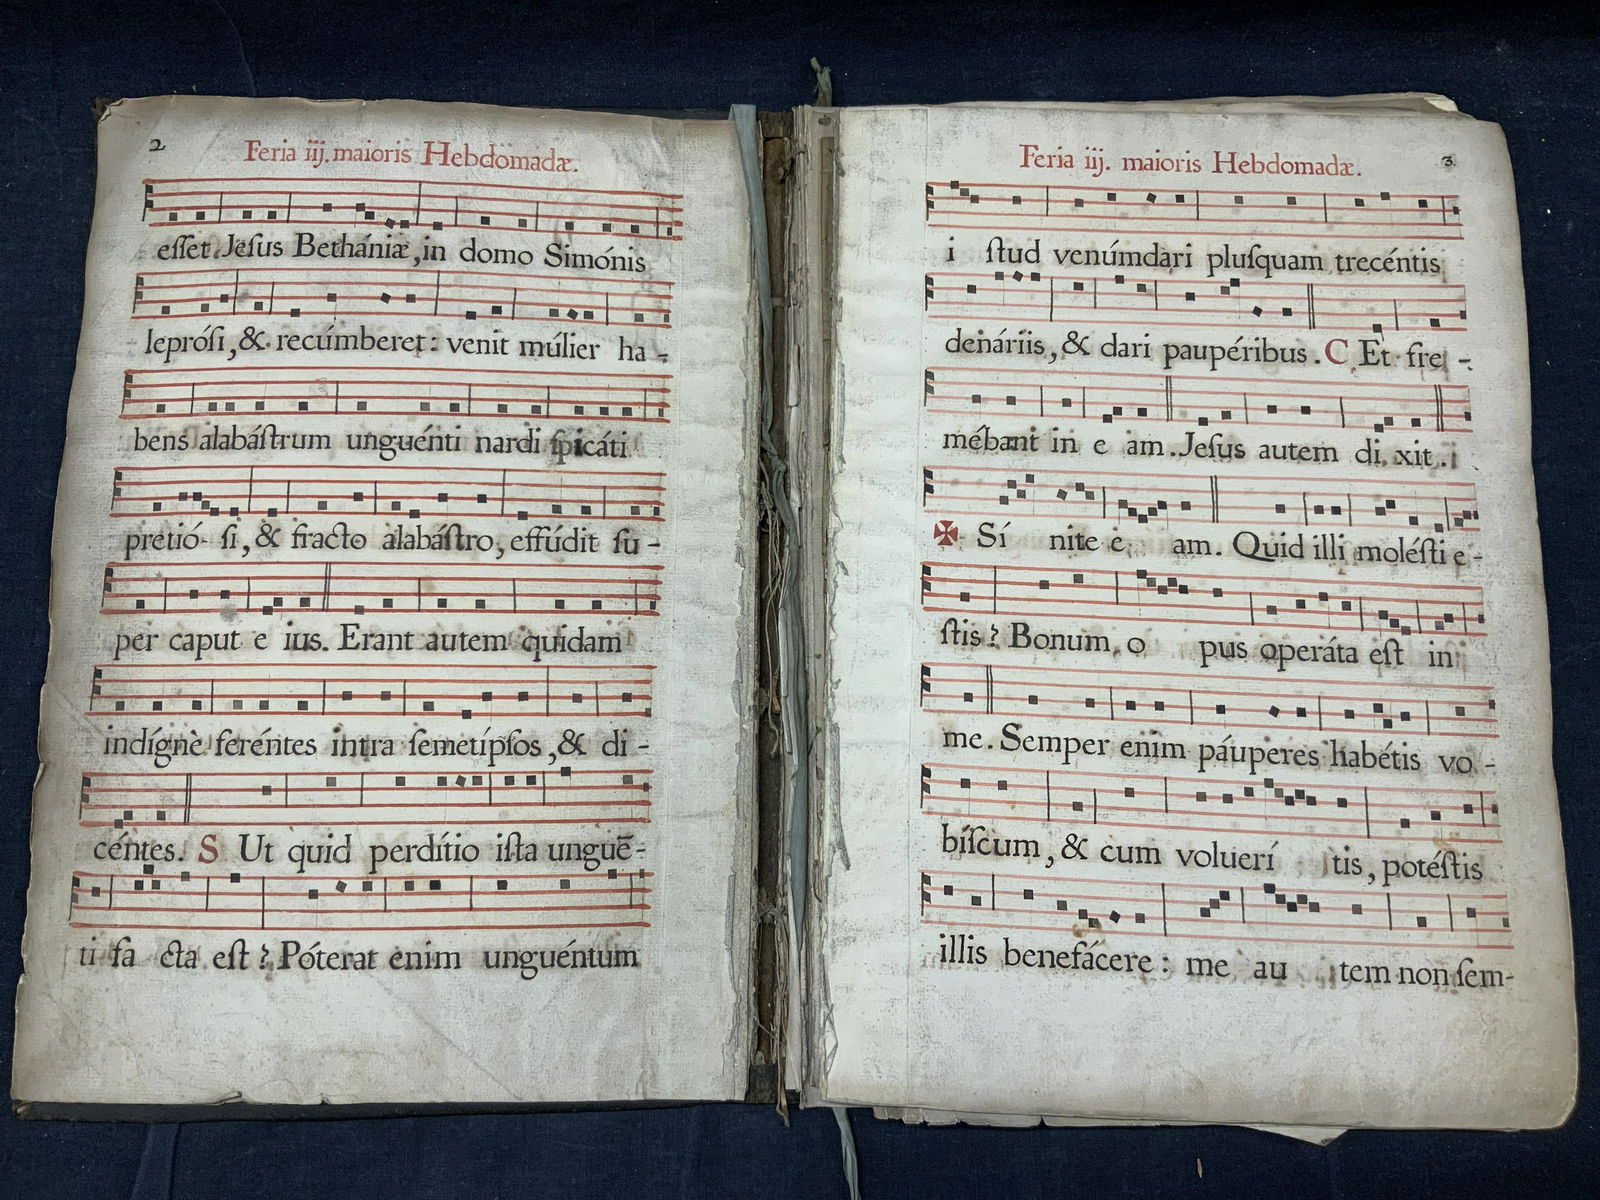 2
Feria iij. maioris Hebdomadæ.
eſſet Jeſus Bethániæ, in domo Simónis
lepróſi, &. recúmberet: venit múlier ha-
bens alabáſtrum unguénti nardi ſpicáti
pretió- ſi, & fracto alabáſtro, effúdit ſu-
per caput e ius. Erant autem quidam
indígnè feréntes intra ſemetípſos, & di-
céntes. S Ut quid perdítio iſta unguē-
ti fa cta eſt? Póterat enim unguéntum
3.
Feria iij. maioris Hebdomadæ.
i ſtud venúmdari pluſquam trecéntis
denáriis, & dari paupéribus. C Et fre-
mébant in e am. Jeſus autem di xit.
✠ Sí nite e am. Quid illi moléſti e-
ſtis? Bonum o pus operáta eſt in
me. Semper enim páuperes habétis vo-
bíſcum, & cum voluerí tis, potéſtis
illis benefácere: me au tem non ſem-